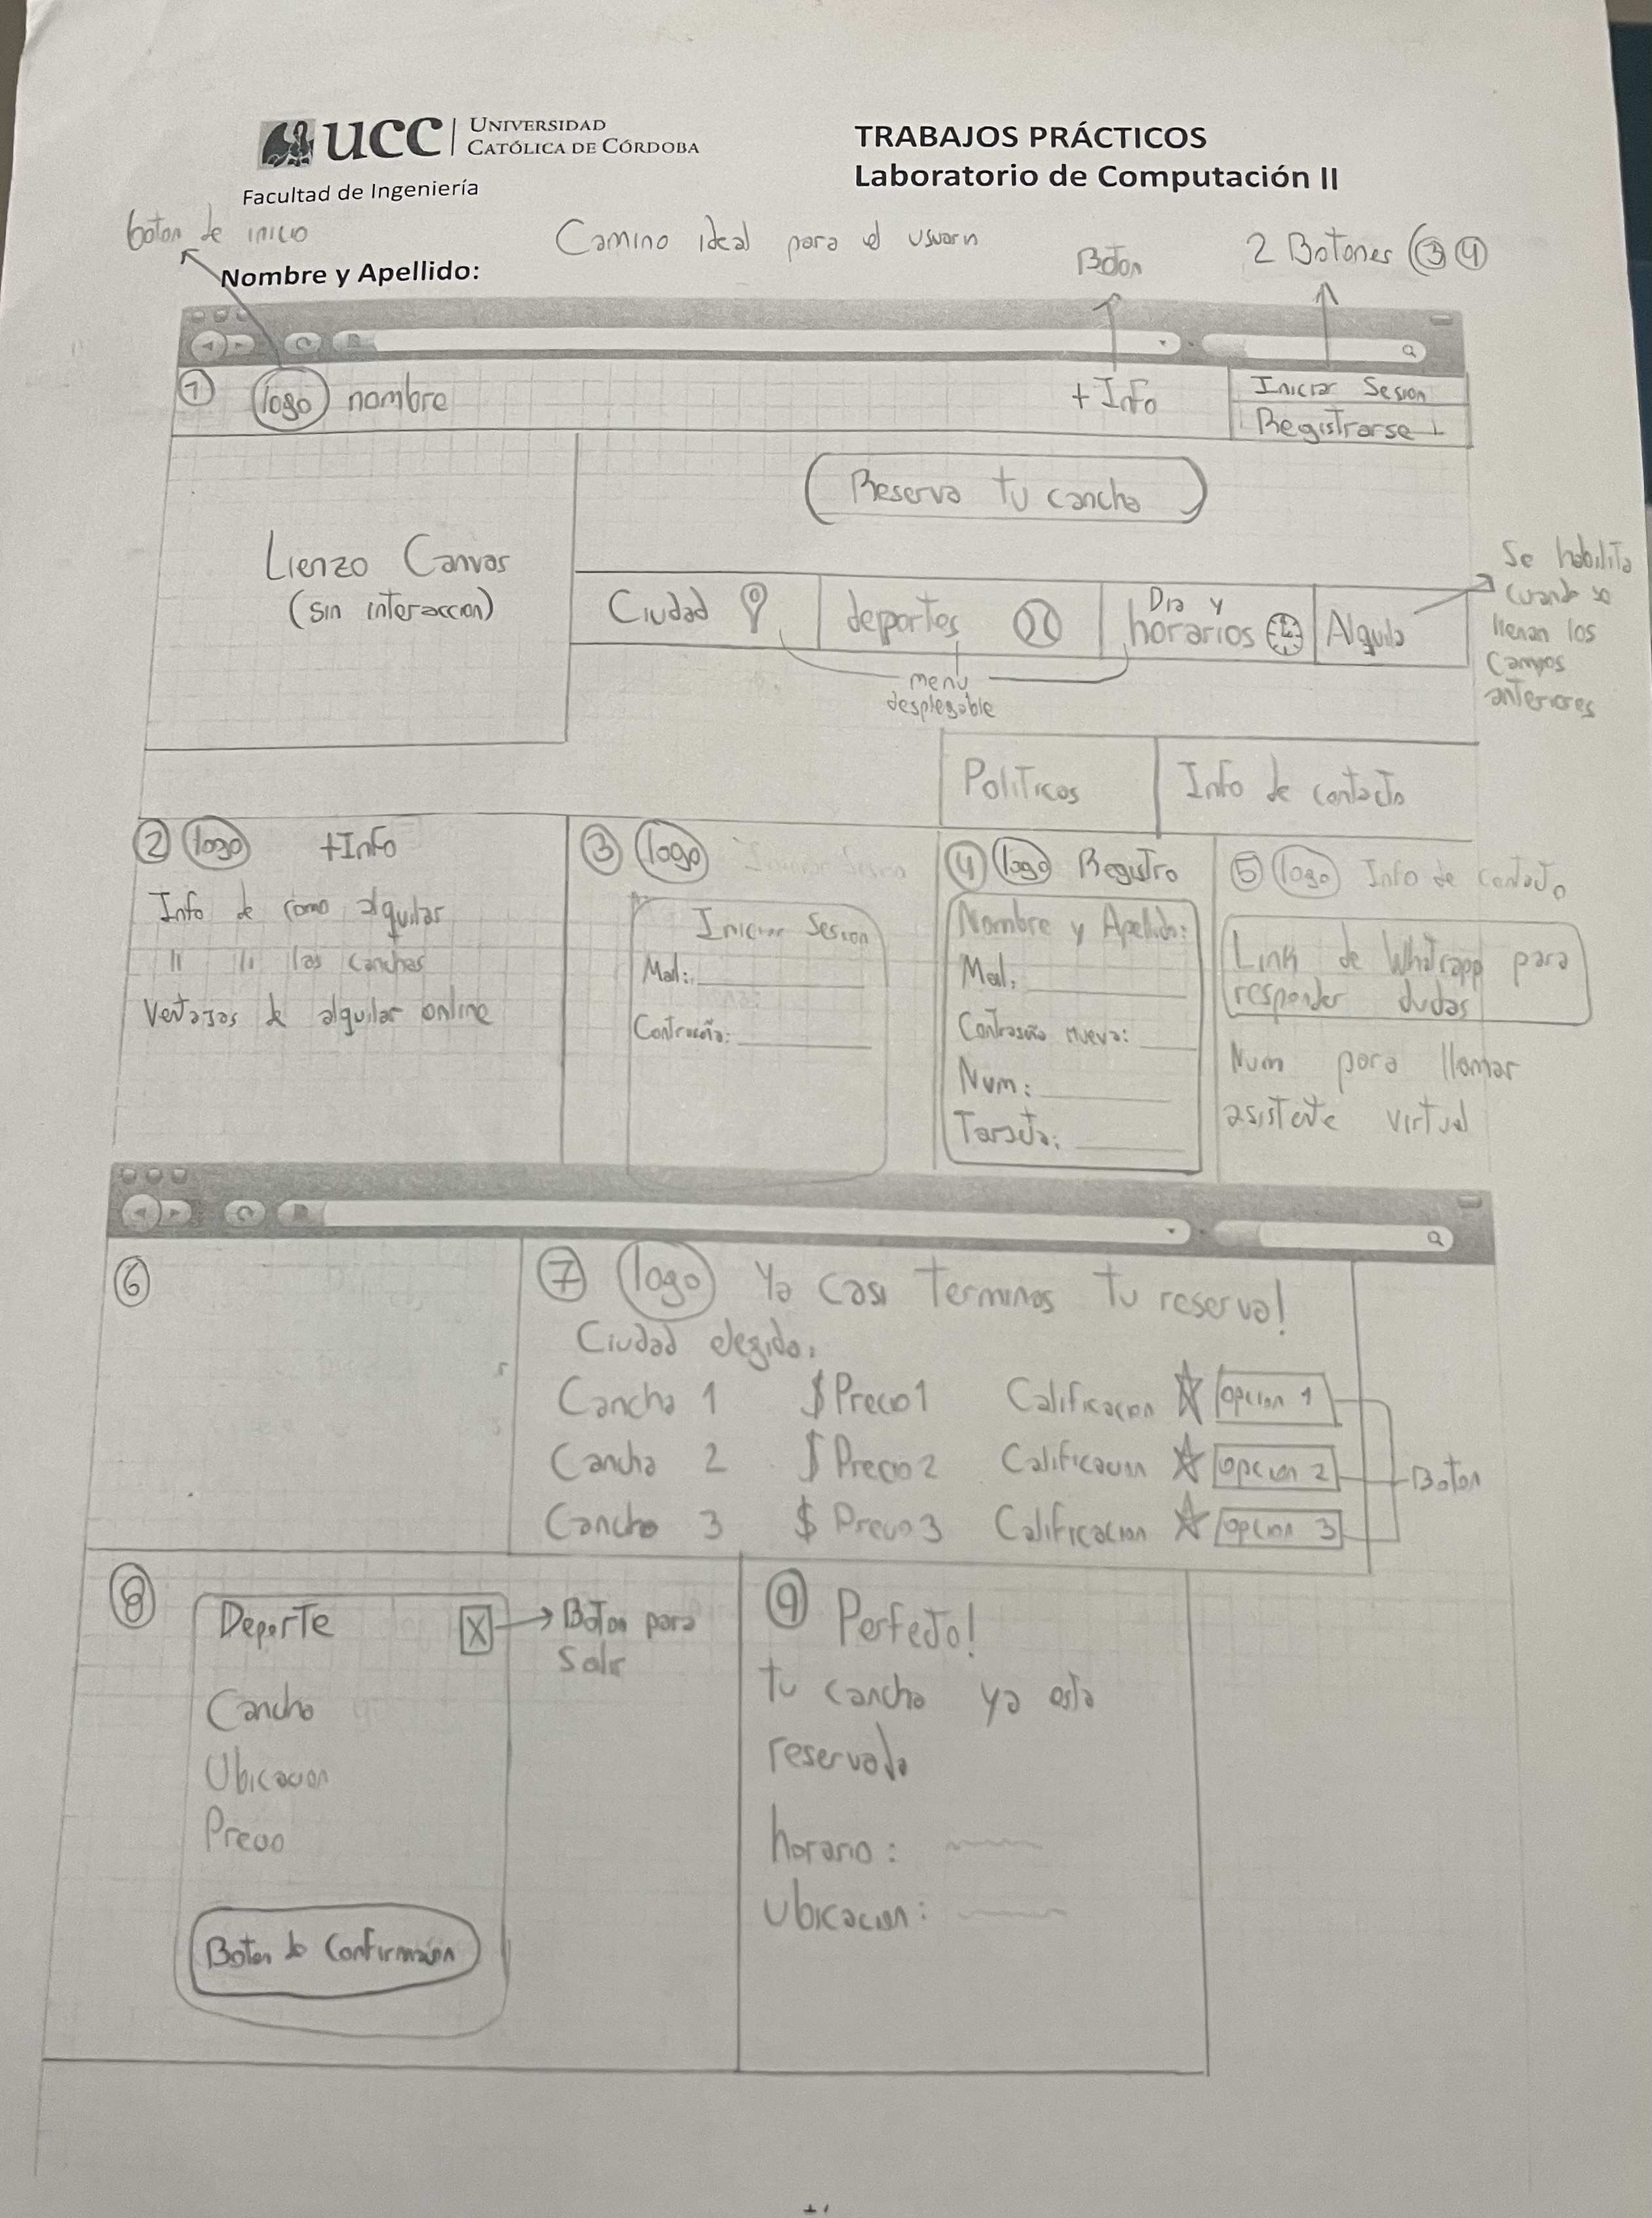 UCC UNIVERSIDAD
CATÓLICA DE CÓRDOBA
Facultad de Ingeniería
TRABAJOS PRÁCTICOS
Laboratorio de Computación II
boton de inicio
Camino ideal para el usuario
Boton
2 Botones (3 4
Nombre y Apellido:
1 logo nombre
+ Info
Iniciar Sesion
Registrarse
Reserva tu cancha
Lienzo Canvas
(sin interaccion)
Ciudad
deportes
Dia y
horarios
Alquila
Se habilita
cuando se
llenan los
Campos
anteriores
menu
desplegable
Politicas
Info de contacto
2 logo +Info
Info de como alquilar
" " las canchas
Ventajas de alquilar online
3 logo
Iniciar Sesion
Mail:
Contraseña:
4 logo Registro
Nombre y Apellido:
Mail:
Contraseña nueva:
Num:
Tarjeta:
5 logo Info de contacto
Link de Whatsapp para
responder dudas
Num para llamar
asistente virtual
6
7 logo Ya casi terminas tu reserva!
Ciudad elegida:
Cancha 1 $ Precio1 Calificacion opcion 1
Cancha 2 $ Precio2 Calificacion opcion 2
Cancha 3 $ Precio3 Calificacion opcion 3
Boton
8
Deporte X
Boton para
Salir
Cancha
Ubicacion
Precio
Boton de Confirmación
9 Perfecto!
tu cancha ya esta
reservada
horario:
ubicacion: